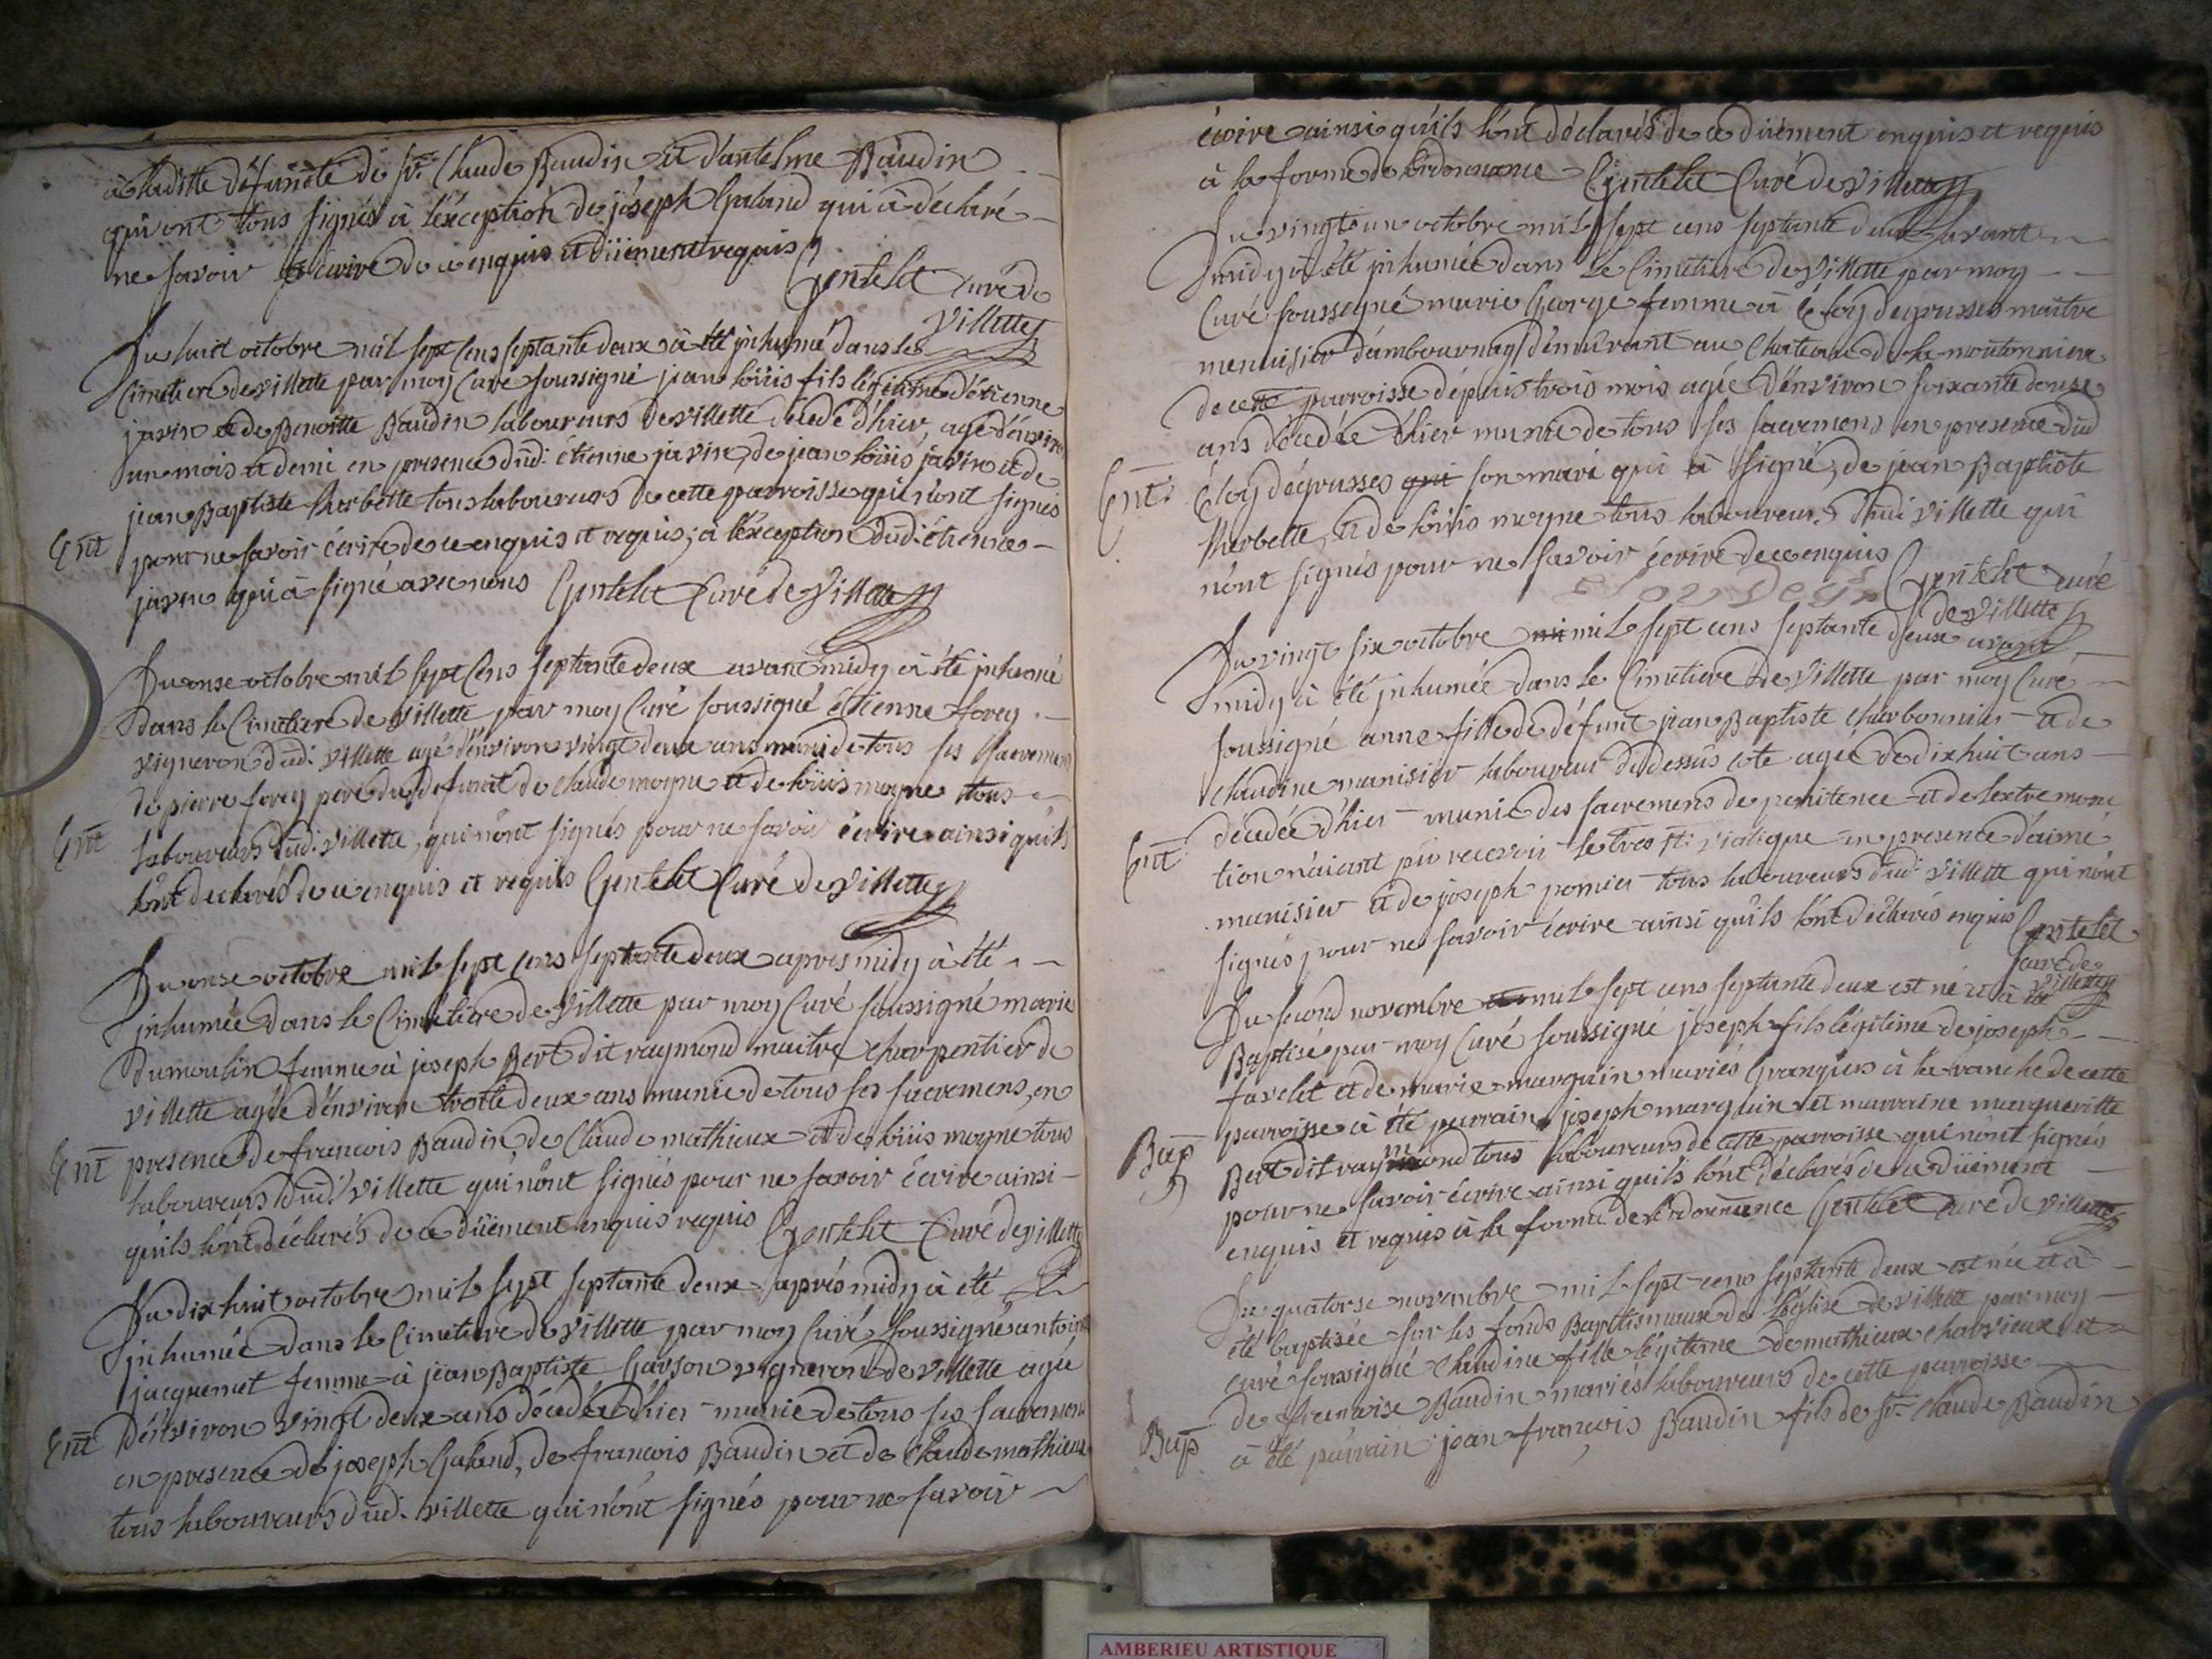 à laditte défuncte de sr. Claude Baudin et d'antelme Baudin
qui ont tous signés à l'éxception de joseph Galand qui à déclaré
ne savoir écrire de ce enquis et düement requis
Gentelet curé de
villette
Du huit octobre mil sept cens septante deux à été inhumé dans le
Cimetiere de villette par moy Curé soussigné jean loüis fils légitime d'étienne
javin et de Benoitte Baudin laboureurs de villette décédé d'hier agé d'environ
un mois et demi en presence dud. étienne javin, de jean loüis javin et de
jean Baptisteherbette tous laboureurs de cette parroisse qui n'ont signés
Ent
pour ne savoir écrire de ce enquis et requis, à l'éxception dud. étienne
javin qui à signé avec nous Gentelet Curé de villette
Du onse octobre mil sept cens septante deux avant midy à été inhumé
dans le Cimetiere de villette par moy Curé soussigné étienne forey
vigneron dud. villette agé d'environ vingt deux ans muni de tous ses sacremens
de pierre forey pere du defunt de claude moyne et de loüis moyne tous
Ent
laboureurs dud. villette, qui n'ont signés pour ne savoir écrire ainsi qu'ils
l'ont declarés de ce enquis et requis Gentelet Curé de villette
Du onse octobre mil sept cens septante deux apres midy à été
inhumée dans le Cimetiere de villette par moy Curé soussigné marie
Dumoulin femme à joseph Bert dit raymond maitre charpentier de
villette agée d'environ trente deux ans munie de tous ses sacremens, en
Ent
presence de francois Baudin, de Claude mathieux et de loüis moyne tous
laboureurs dud. villette qui n'ont signés pour ne savoir écrire ainsi
qu'ils l'ont déclarés de ce düement enquis requis Gentelet Curé de villette
Du dix huit octobre mil sept septante deux aprés midy à été
inhumée dans le Cimetiere de villette par moy Curé soussigné antoinette
jacquemet femme à jean Baptiste Garson vigneron de villette agée
Ent
d'environ vingt deux ans décédée d'hier munie de tous ses sacremens
en presence de joseph Galand, de francois Baudin et de claude mathieux
tous laboureurs dud. villette qui n'ont signés pour ne savoir
écrire ainsi qu'ils l'ont déclarés de ce düement enquis et requis
à la forme de l'ordonnance Gentelet Curé de villette
Du vingt un octobre mil sept cens septante deux avant
midy à été inhumée dans le Cimetiere de villette par moy
Curé soussigné marie George femme à éloy degrusses maitre
menuisier d'ambournay demeurant au chateaux de la moutonniere
de cette parroisse dépuis trois mois agée d'environ soixante douse
ans décedée d'hier munie de tous ses sacremens en presence dud
Ent.
éloy dégrusses qui son mari qui à signé, de jean Baptiste
herbette, et de loüis moyne tous laboureurs dud. villette qui
n'ont signés pour ne savoir écrire de ce enquis Gentelet curé
de villette
Du vingt six octobre mi mil sept cens septante deux avant
midy à été inhumée dans le Cimetiere de villette par moy Curé
soussigné anne fille de défunt jean Baptiste charbonnier et de
claudine munisier laboureur du dessûs cote agée de dix huit ans
décedée d'hier munie des sacremens de penitence et de l'extreme onc
Ent
tion n'aiant pû recevoir le tres st. viatique en presence d'aimé
munisier et de joseph pomier tous laboureurs dud. villette qui n'ont
signés pour ne savoir écrire ainsi qu'ils l'ont déclarés enquis Gentelet
curé de
villette
Du second novembre mil sept cens septante deux est né et à été
Baptisé par moy Curé soussigné joseph fils légitime de joseph
favelet et de marie marguin mariés Grangiers à la ranche de cette
parroisse à été parrain joseph marguin et marraine margueritte
Bap
Bert dit raymond tous laboureurs de cette parroisse qui n'ont signés
pour ne savoir écrire ainsi qu'ils l'ont déclarés de ce düement
enquis et requis à la forme de l'ordonnance Gentelet curé de villette
Du quatorse novembre mil sept cens septante deux est née et à
été baptisée sur les fonds Baptismaux de l'église de villette par moy
curé soussigné claudine fille légitime de mathieux chavrieux et
de francoise Baudin mariés laboureurs de cette parroisse
Bap
à été parrain jean francois Baudin fils de sr. claude Baudin
AMBERIEU ARTISTIQUE